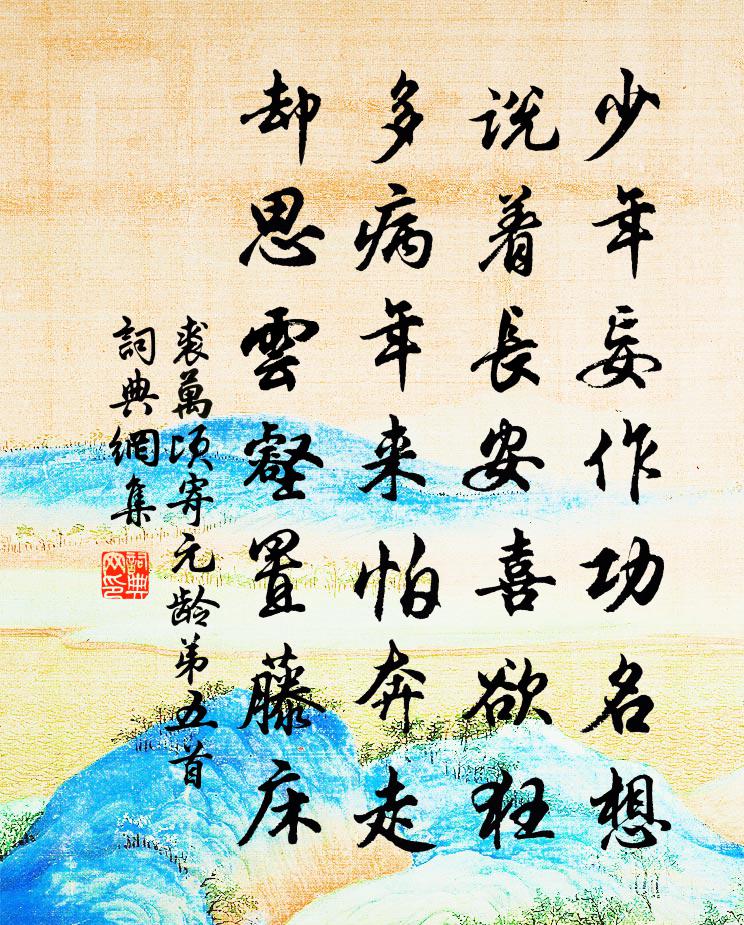 少年妄作功名想
说着長安喜欲狂
多病年来怕奔走
却思雲壑置藤床
裘萬頃寄元龄第五首
詞典網集
詞典網印